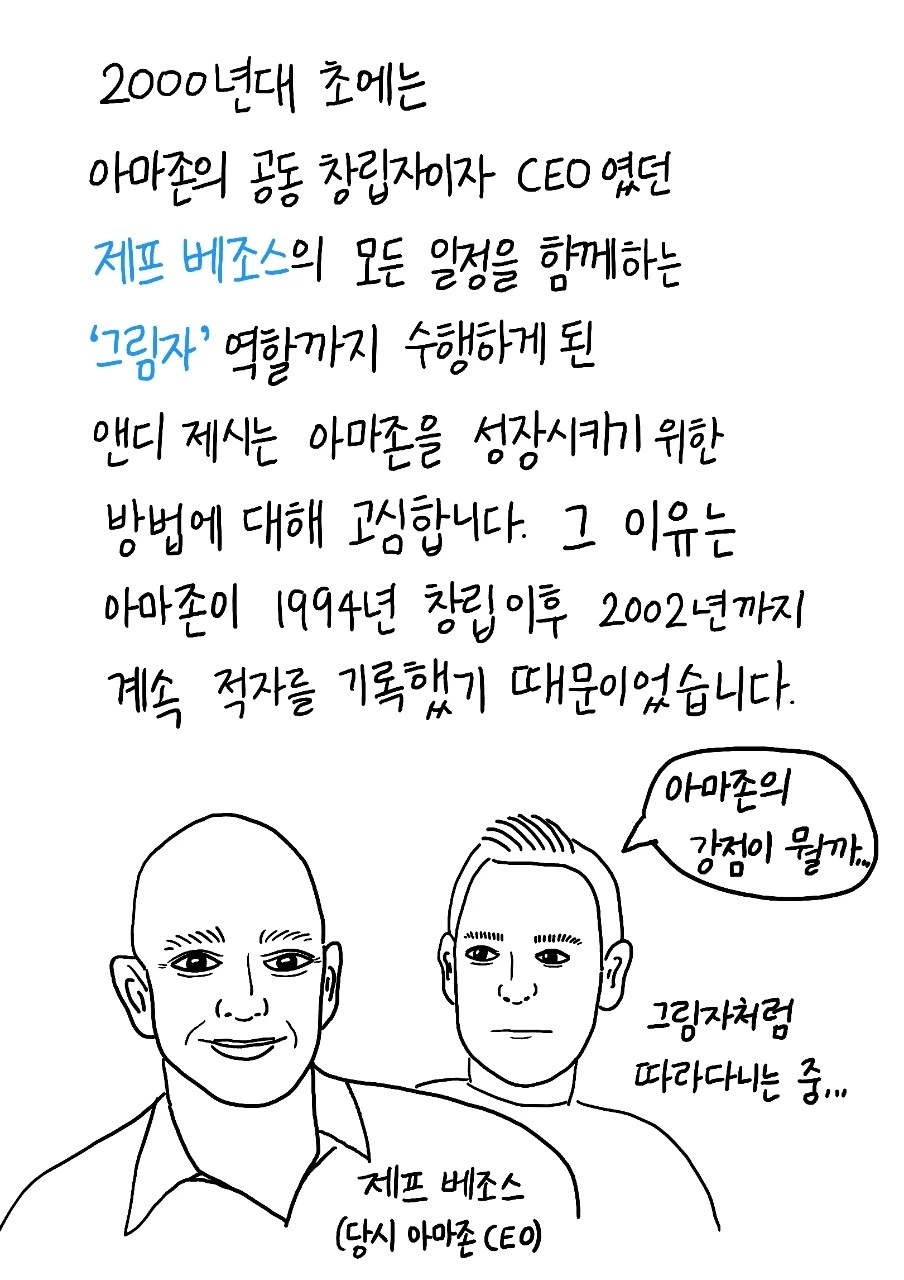 2000년대 초에는
아마존의 공동 창립자이자 CEO였던
제프 베조스의 모든 일정을 함께하는
'그림자' 역할까지 수행하게 된
앤디 제시는 아마존을 성장시키기 위한
방법에 대해 고심합니다. 그 이유는
아마존이 1994년 창립이후 2002년까지
계속 적자를 기록했기 때문이었습니다.
아마존의
강점이 뭘까...
그림자처럼
따라다니는 중...
제프 베조스
(당시 아마존 CEO)